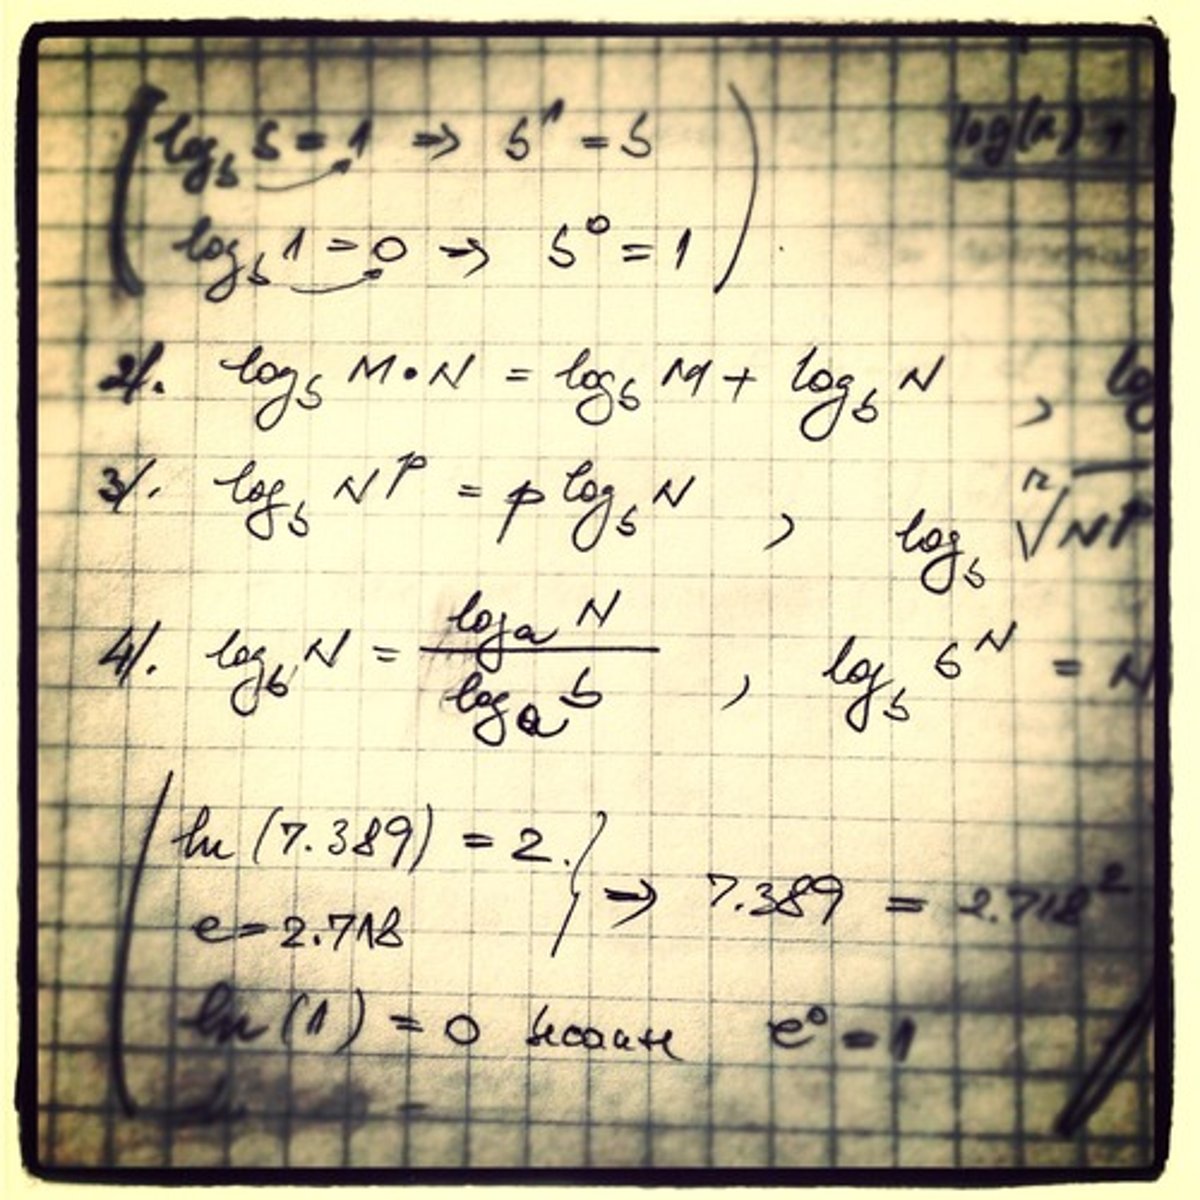 log_b b = 1 ⇒ b^1 = b log(n) +
log_b 1 = 0 → b^0 = 1
2/. log_b M•N = log_b M + log_b N , log
3/. log_b N^p = p log_b N , log_b ⁿ√N^p
4/. log_b N = log_a N / log_a b , log_b b^N = N
ln (7.389) = 2. } → 7.389 = 2.718^2
e = 2.718
ln (1) = 0 e^0 = 1